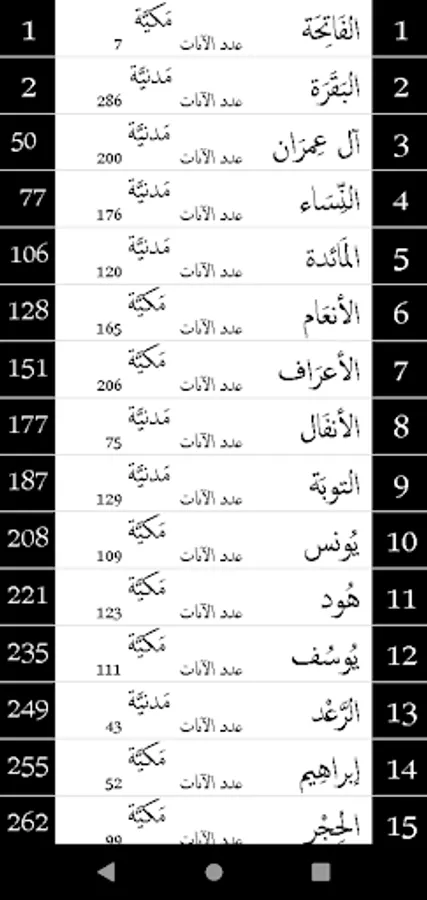 1 الفَاتِحَة مَكيَّة 1
عدد الآيات 7
2 البَقَرَة مَدنيَّة 2
عدد الآيات 286
3 آل عِمرَان مَدنيَّة 50
عدد الآيات 200
4 النِّسَاء مَدنيَّة 77
عدد الآيات 176
5 المَائدة مَدنيَّة 106
عدد الآيات 120
6 الأنعَام مَكيَّة 128
عدد الآيات 165
7 الأعرَاف مَكيَّة 151
عدد الآيات 206
8 الأنفَال مَدنيَّة 177
عدد الآيات 75
9 التوبَة مَدنيَّة 187
عدد الآيات 129
10 يُونس مَكيَّة 208
عدد الآيات 109
11 هُود مَكيَّة 221
عدد الآيات 123
12 يُوسُف مَكيَّة 235
عدد الآيات 111
13 الرَّعْد مَدنيَّة 249
عدد الآيات 43
14 إبراهِيم مَكيَّة 255
عدد الآيات 52
15 الحِجْر مَكيَّة 262
عدد الآيات 99